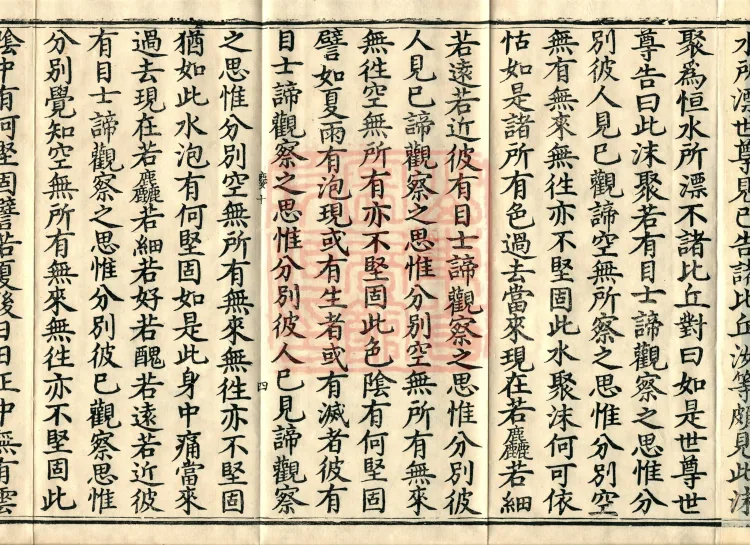 水所漂世尊見已告諸比丘汝等頗見此沫
聚爲恒水所漂不諸比丘對曰如是世尊世
尊告曰此沫聚若有目士諦觀察之思惟分
別彼人見已觀諦空無所察之思惟分別空
無有無來無徃亦不堅固此水聚沫何可依
怙如是諸所有色過去當來現在若麤若細
若遠若近彼有目士諦觀察之思惟分別彼
人見已諦觀察之思惟分別空無所有無來
無徃空無所有亦不堅固此色陰有何堅固
譬如夏雨有泡現或有生者或有滅者彼有
目士諦觀察之思惟分別彼人已見諦觀察
十 四
之思惟分別空無所有無來無徃亦不堅固
猶如此水泡有何堅固如是此身中痛當來
過去現在若麤若細若好若醜若遠若近彼
有目士諦觀察之思惟分別彼已觀察思惟
分別覺知空無所有無來無徃亦不堅固此
陰中有何堅固譬若夏後日日正中無有雲